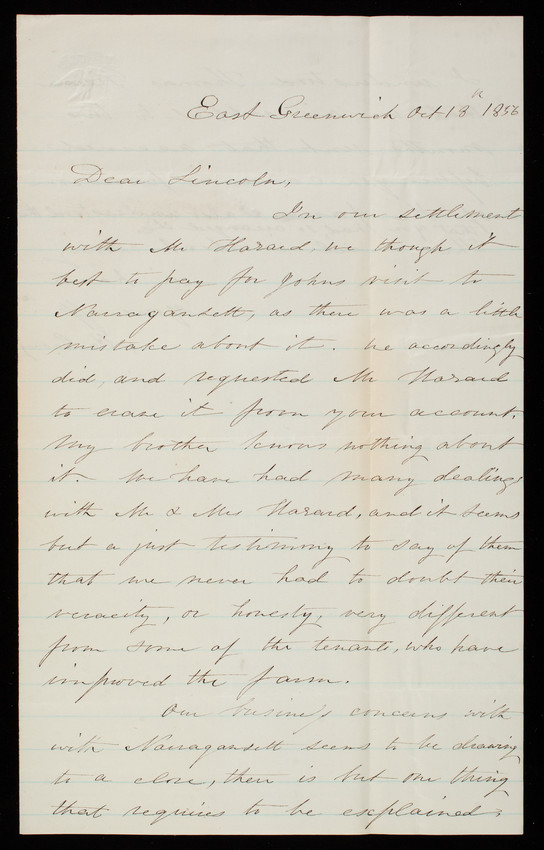 East Greenwich Oct 18th 1856
Dear Lincoln,
In our settlement
with Mr Hazard, we though it
best to pay for Johns visit to
Narragansett, as there was a little
mistake about it. We accordingly
did, and requested Mr Hazard
to erase it from your account.
My brother knows nothing about
it. We have had many dealings
with Mr & Mrs Hazard, and it seems
but a just testimony to say of them
that we never had to doubt their
veracity, or honesty, very different
from some of the tenants, who have
improved the farm.
Our business concerns with
with Narragansett seems to be drawing
to a close, there is but one thing
that requires to be explained;